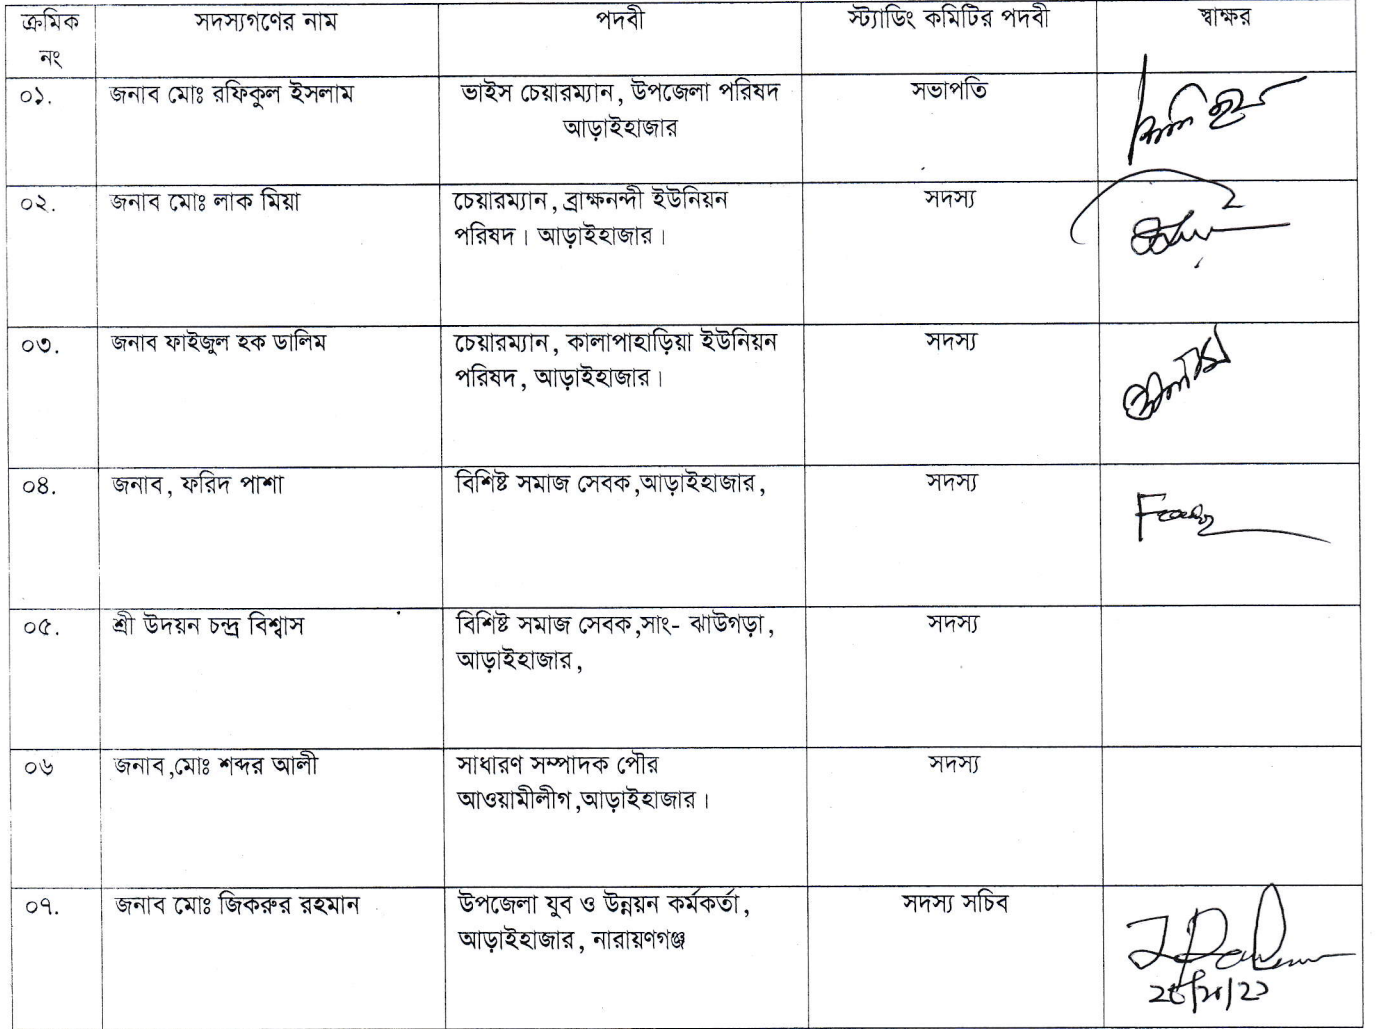 ক্রমিক নং সদস্যগণের নাম পদবী স্ট্যাডিং কমিটির পদবী স্বাক্ষর
০১. জনাব মোঃ রফিকুল ইসলাম ভাইস চেয়ারম্যান, উপজেলা পরিষদ সভাপতি
আড়াইহাজার
০২. জনাব মোঃ লাক মিয়া চেয়ারম্যান, ব্রাক্ষনন্দী ইউনিয়ন সদস্য
পরিষদ। আড়াইহাজার।
০৩. জনাব ফাইজুল হক ডালিম চেয়ারম্যান, কালাপাহাড়িয়া ইউনিয়ন সদস্য
পরিষদ, আড়াইহাজার।
০৪. জনাব, ফরিদ পাশা বিশিষ্ট সমাজ সেবক,আড়াইহাজার, সদস্য
০৫. শ্রী উদয়ন চন্দ্র বিশ্বাস বিশিষ্ট সমাজ সেবক,সাং- ঝাউগড়া, সদস্য
আড়াইহাজার,
০৬ জনাব,মোঃ শব্দর আলী সাধারণ সম্পাদক পৌর সদস্য
আওয়ামীলীগ,আড়াইহাজার।
০৭. জনাব মোঃ জিকরুর রহমান উপজেলা যুব ও উন্নয়ন কর্মকর্তা, সদস্য সচিব
আড়াইহাজার, নারায়ণগঞ্জ